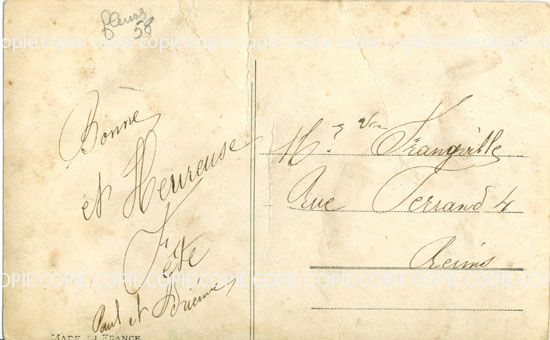 fleurs
58
COPIE COPIE COPIE COPIE COPIE COPIE COPIE COPIE COPIE
Bonne
et Heureuse
Fête
Paul et
MADE IN FRANCE
Frangville
Rue Ferrand 4
Reims
COPIE COPIE COPIE COPIE COPIE COPIE COPIE COPIE COPIE